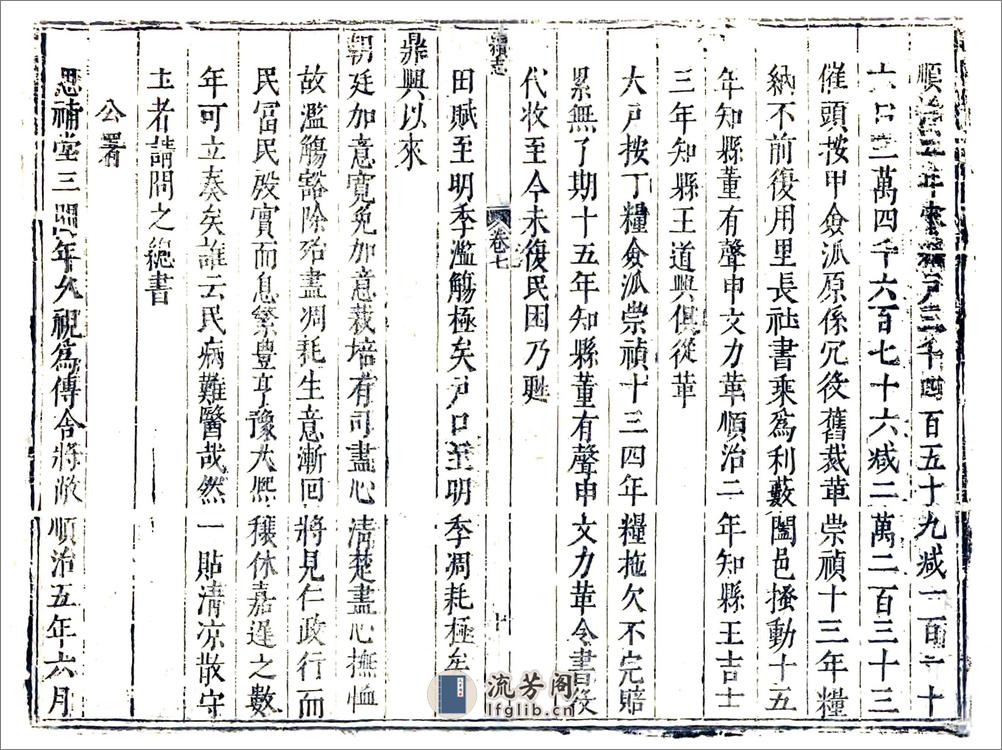 順治五年實戶三千四百五十九减一百一十
六口三萬四千六百七十六减二萬二百三十三
催頭按甲僉派原係冗役舊裁革崇禎十三年糧
納不前復用里長社書乘爲利藪闔邑搔動十五
年知縣董有聲申文力革順治二年知縣王吉士
三年知縣王道興俱從革
大戸按丁糧僉派崇禎十三四年糧拖欠不完賠
累無了期十五年知縣董有聲申文力革令書役
代收至今未復民困乃甦
續志 卷七 十
田賦至明季濫觴極矣戸口至明季凋耗極矣
鼎興以來
朝廷加意寬免加意栽培有司盡心清楚盡心撫恤
故濫觴豁除殆盡凋耗生意漸回將見仁政行而
民富民殷實而息繁豊亨豫大熙穰休嘉遲之數
年可立奏矣誰云民病難醫哉然一貼清凉散守
土者請問之總書
公署
思補堂三間年久視爲傳舍將敝順治五年六月
流芳阁
lfglib.cn